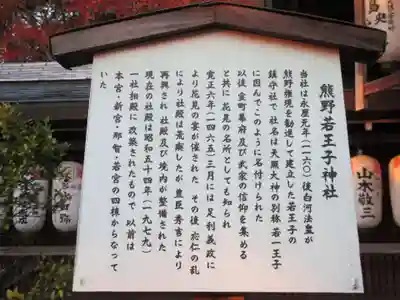 熊野若王子神社
当社は永暦元年(一一六〇)後白河法皇が
熊野権現を勧進して建立した若王子の
鎮守社で 社名は天照大神の別称「若一王子」
に因んでこのように名付けられた
以後 室町幕府及び武家の信仰を集める
と共に 花見の名所としても知られ
寛正六年(一四六五)三月には 足利義政に
より花見の宴が催された その後 応仁の乱
により社殿は荒廃したが 豊臣秀吉により
再興され 社殿及び境内が整備された
現在の社殿は昭和五十四年(一九七九)
一社相殿に 改築されたもので 以前は
本宮・新宮・那智・若宮の四棟からなって
いた
山本敬三